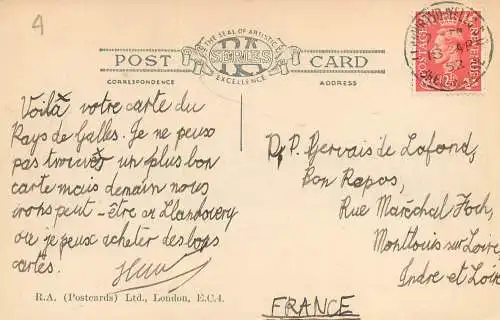 4
THE SEAL OF ARTISTIC
EXCELLENCE
RA
SERIES
POST CARD
CORRESPONDENCE
ADDRESS
Voilà votre carte du
Pays de Galles. Je ne peux
pas trouver un plus bon
carte mais demain nous
irons peut-être at Llandovery
ou je peux acheter des bons
cartes.
Dr P. Gervais de Lafond,
Bon Repos,
Rue Maréchal Foch,
Montlouis sur Loire,
Indre et Loire
FRANCE
R.A. (Postcards) Ltd., London, E.C.4.
POSTAGE
REVENUE